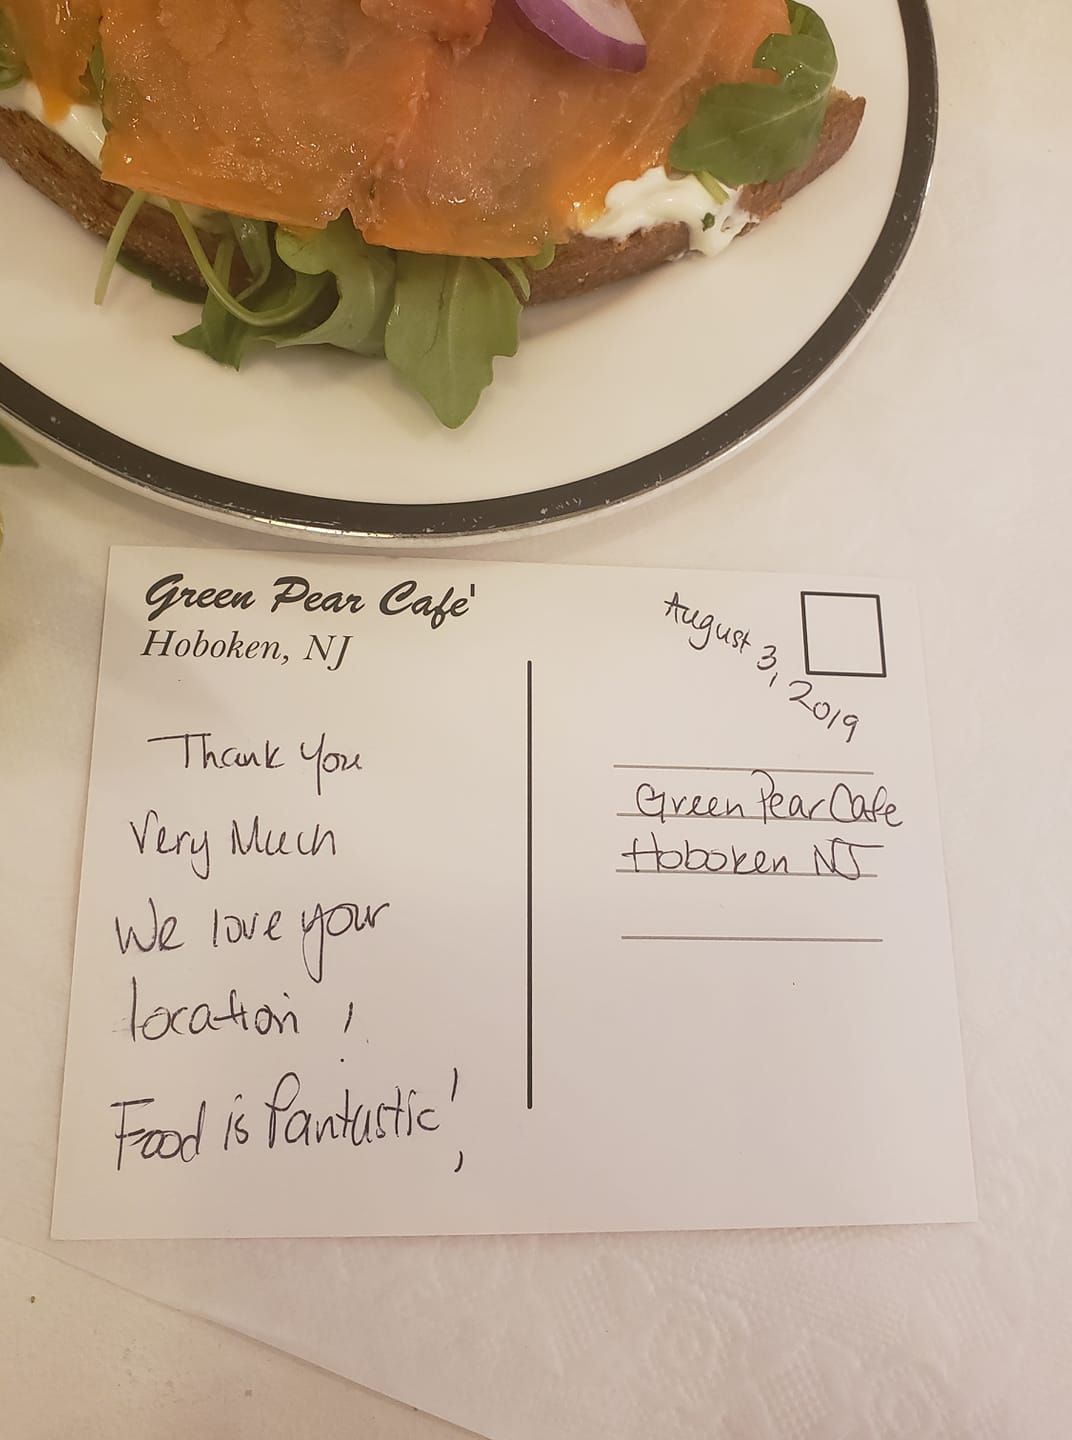 Green Pear Cafe'
Hoboken, NJ
Thank you
Very Much
We love your
location !
Food is fantastic!
August 3, 2019
Green Pear Cafe
Hoboken NJ